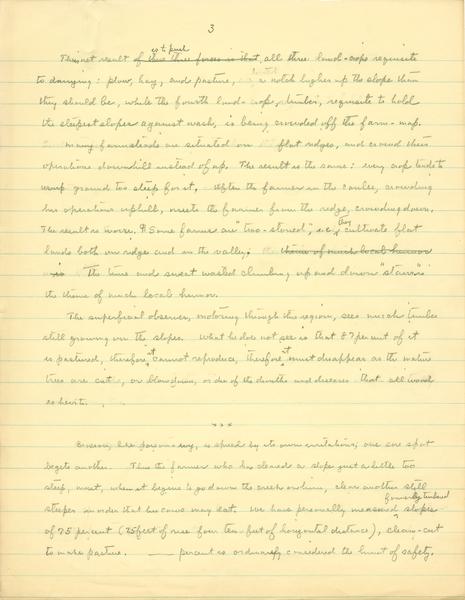 3
The net result of these three forces is that is to push all three land-crops requisite
to dairying: plow, hay, and pasture, a notch higher up the slope than
they should be, while the fourth land-crop, timber, requisite to hold
the steepest slopes against wash, is being crowded off the farm-map.
Many farmsteads are situated on flat ridges, and extend their
operations downhill instead of up. The result is the same: every crop tends to
usurp ground too steep for it. Often the farmer in the coulee, crowding
his operations uphill, meets the farmer from the ridge, crowding down.
The result is worse. ¶ Some farms are "two-storied", i.e., they cultivate flat
lands both on ridges and in the valley; theme of much local humor
is The time and sweat wasted climbing up and down "stairs" is
the theme of much local humor.
The superficial observer, motoring through this region, sees much timber
still growing on the slopes. What he does not see is that 87 percent of it
is pastured, therefore it cannot reproduce, therefore it must disappear as the mature
trees are cut, or blow down, or die of the droughts and diseases that all wood
is heir to.
* * *
Erosion, like poison ivy, is spread by its own irritations; one sore spot
begets another. Thus the farmer who has cleared a slope just a little too
steep, must, when it begins to go down the creek, clear another still
steeper in order that his cows may eat. We have personally measured formerly timbered slopes
of 75 percent (75 feet of rise for ten feet of horizontal distance), clean-cut
to make pasture. ___ percent is ordinarily considered the limit of safety.